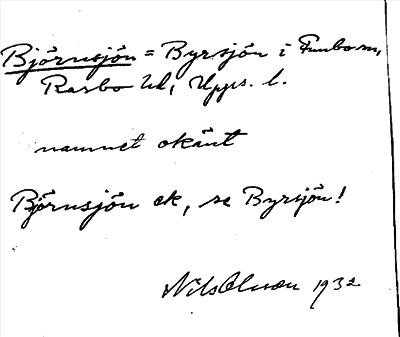 Björnsjön = Byrsjön i Funbo sn,
Rasbo hd, Upps. l.
namnet okänt
Björnsjön ek, se Byrsjön!
Nils Olsson 1932